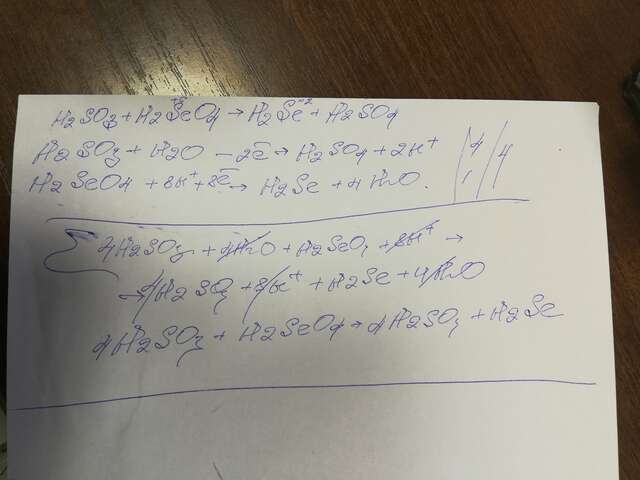 H2SO3 + H2SeO4 → H2Se + H2SO4
+6 -2
H2SO3 + H2O - 2e → H2SO4 + 2H+ | 4 | 4
H2SeO4 + 8H+ + 8e → H2Se + 4H2O. | 1
4H2SO3 + 4H2O + H2SeO4 + 8H+ →
→ 4H2SO3 + 8H+ + H2Se + 4H2O
4H2SO3 + H2SeO4 → 4H2SO3 + H2Se